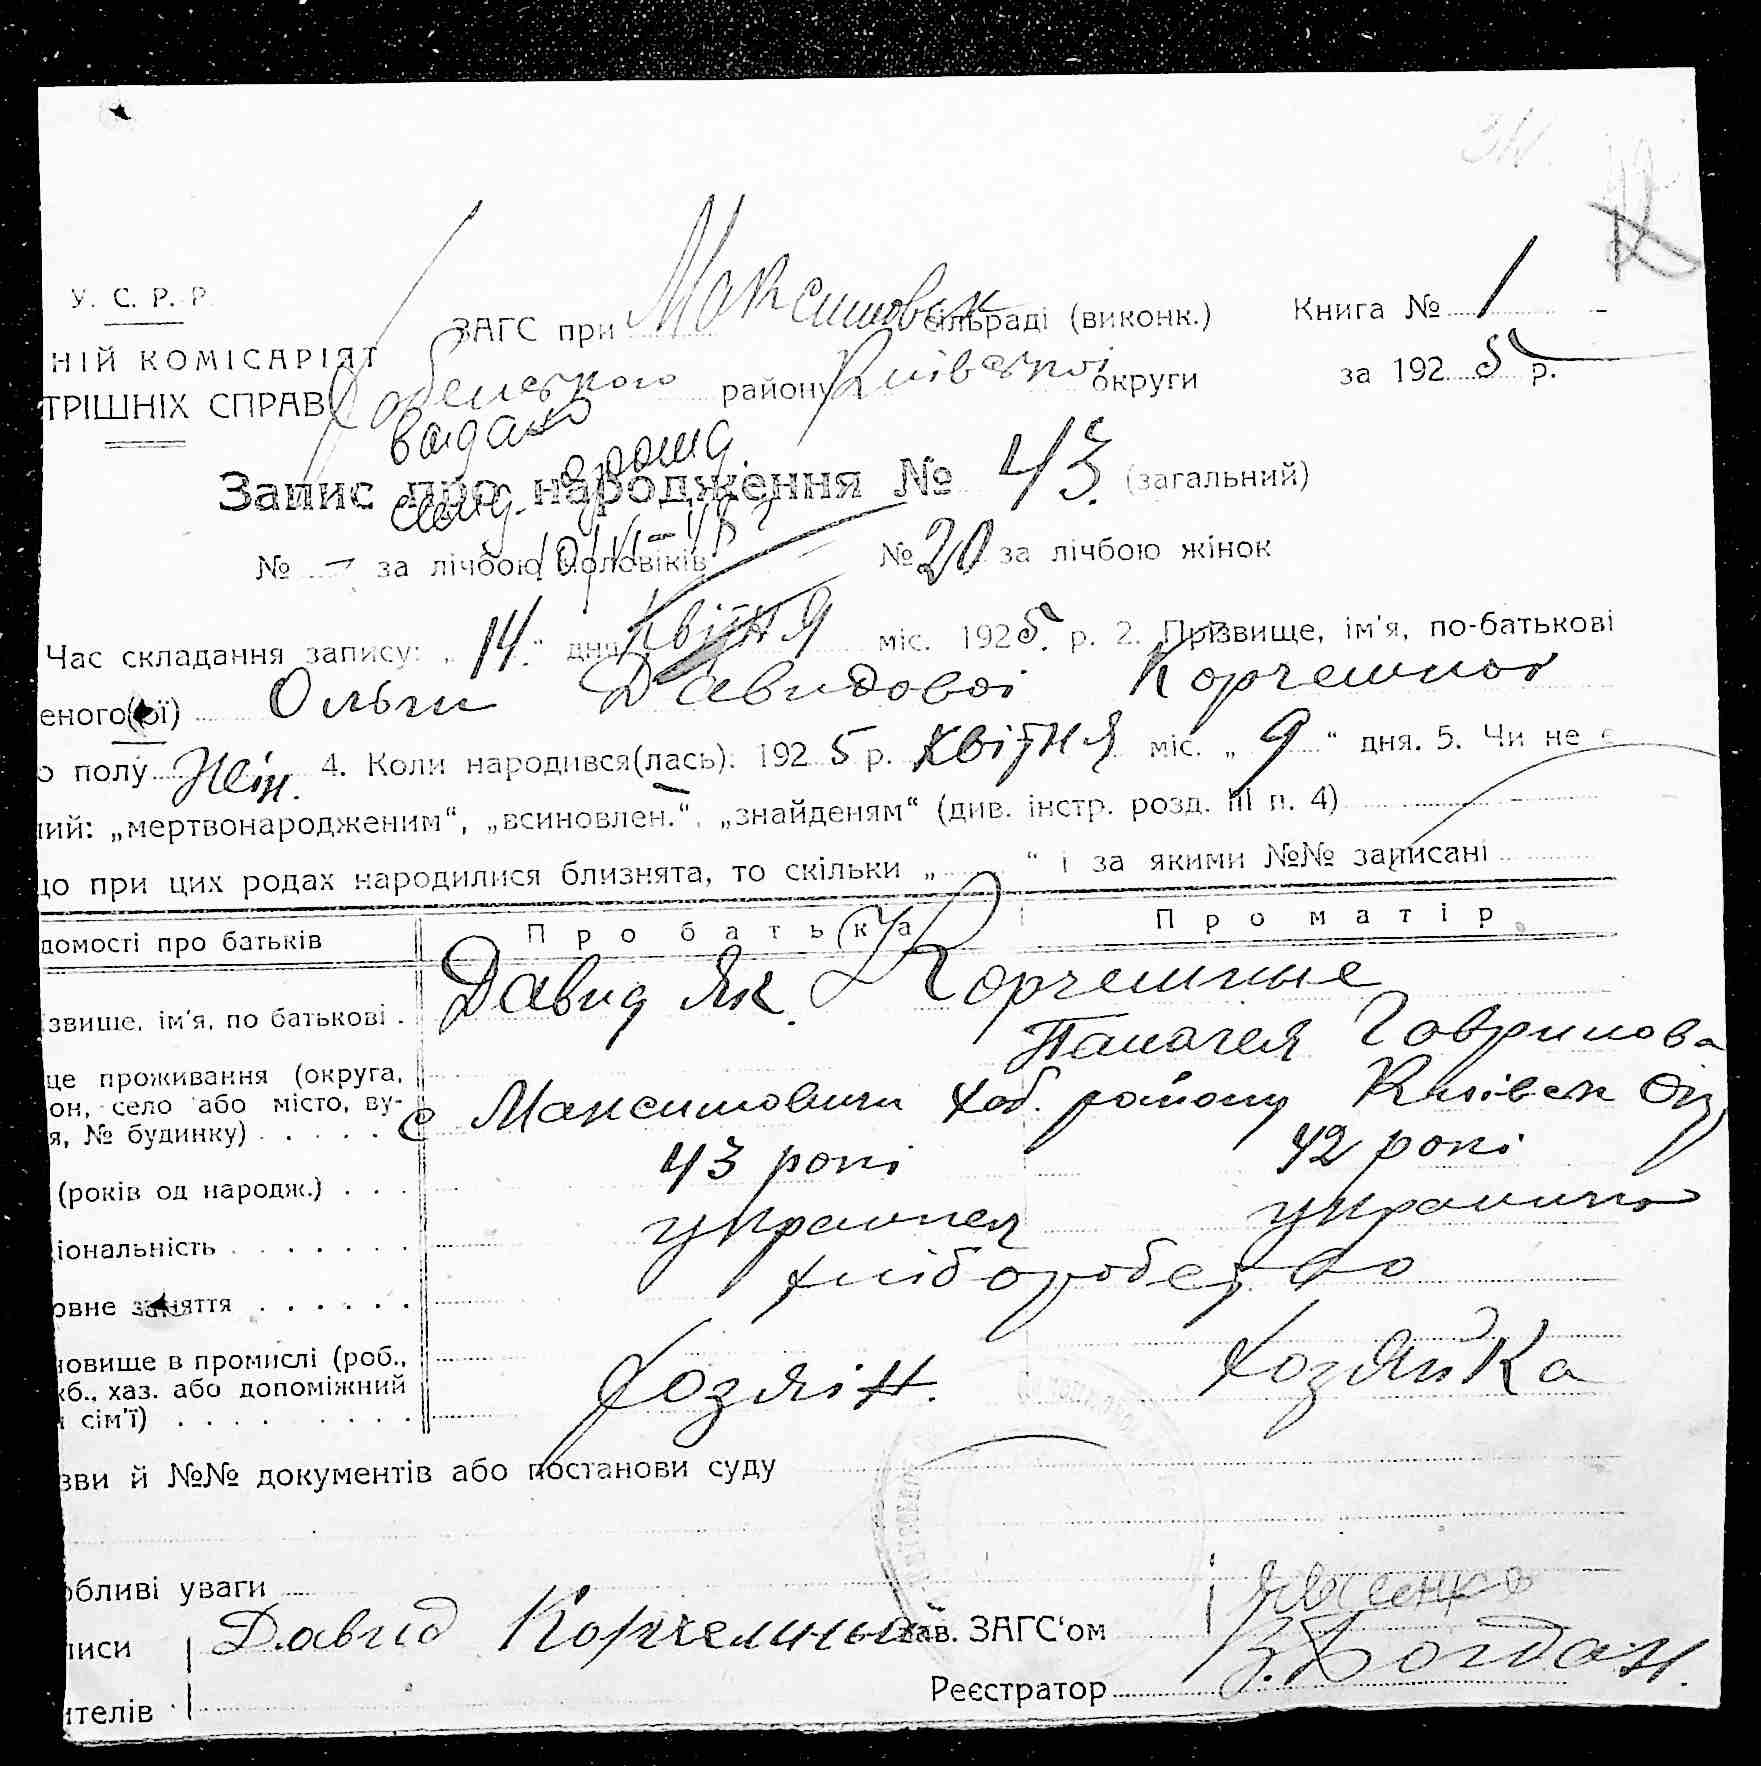 У. С. Р. Р.
НІЙ КОМІСАРІЯТ
ТРІШНІХ СПРАВ
ЗАГС при Максимовск сільраді (виконк.)
Книга № 1
району Київської округи
за 1925 р.
видано
Запис про народження № 43. (загальний)
№ – за лічбою чоловіків № 20 за лічбою жінок
Час складання запису: „14.“ дня квітня міс. 1925. р. 2. Прізвище, ім'я, по-батькові
еного(ої) Ольги Давидової Корчемної
о полу Жін. 4. Коли народився(лась): 1925 р. квітня міс. „9“ дня. 5. Чи не є
ий: „мертвонародженим“, „всиновлен.“, „знайденям“ (див. інстр. розд. III п. 4)
що при цих родах народилися близнята, то скільки „ “ і за якими №№ записані
домості про батьків Про батька Про матір
звище, ім'я, по батькові . Давид Як. Корчемные
Гаврилова
це проживання (округа,
он, село або місто, ву-
я, № будинку) . . . . . с Максимовичи Хаб. району Київськ
(років од народж.) . . . 43 рокі 42 рокі
іональність . . . . . . . українец українка
овне заняття . . . . . . хліборобство
новище в промислі (роб.,
жб., хаз. або допоміжний
сім'ї) . . . . . . . . . Хозяін. Хозяйка
зви й №№ документів або постанови суду
обливі уваги
писи Давид Корчемный
Зав. ЗАГС'ом
Реєстратор З. Богдан.
ителів